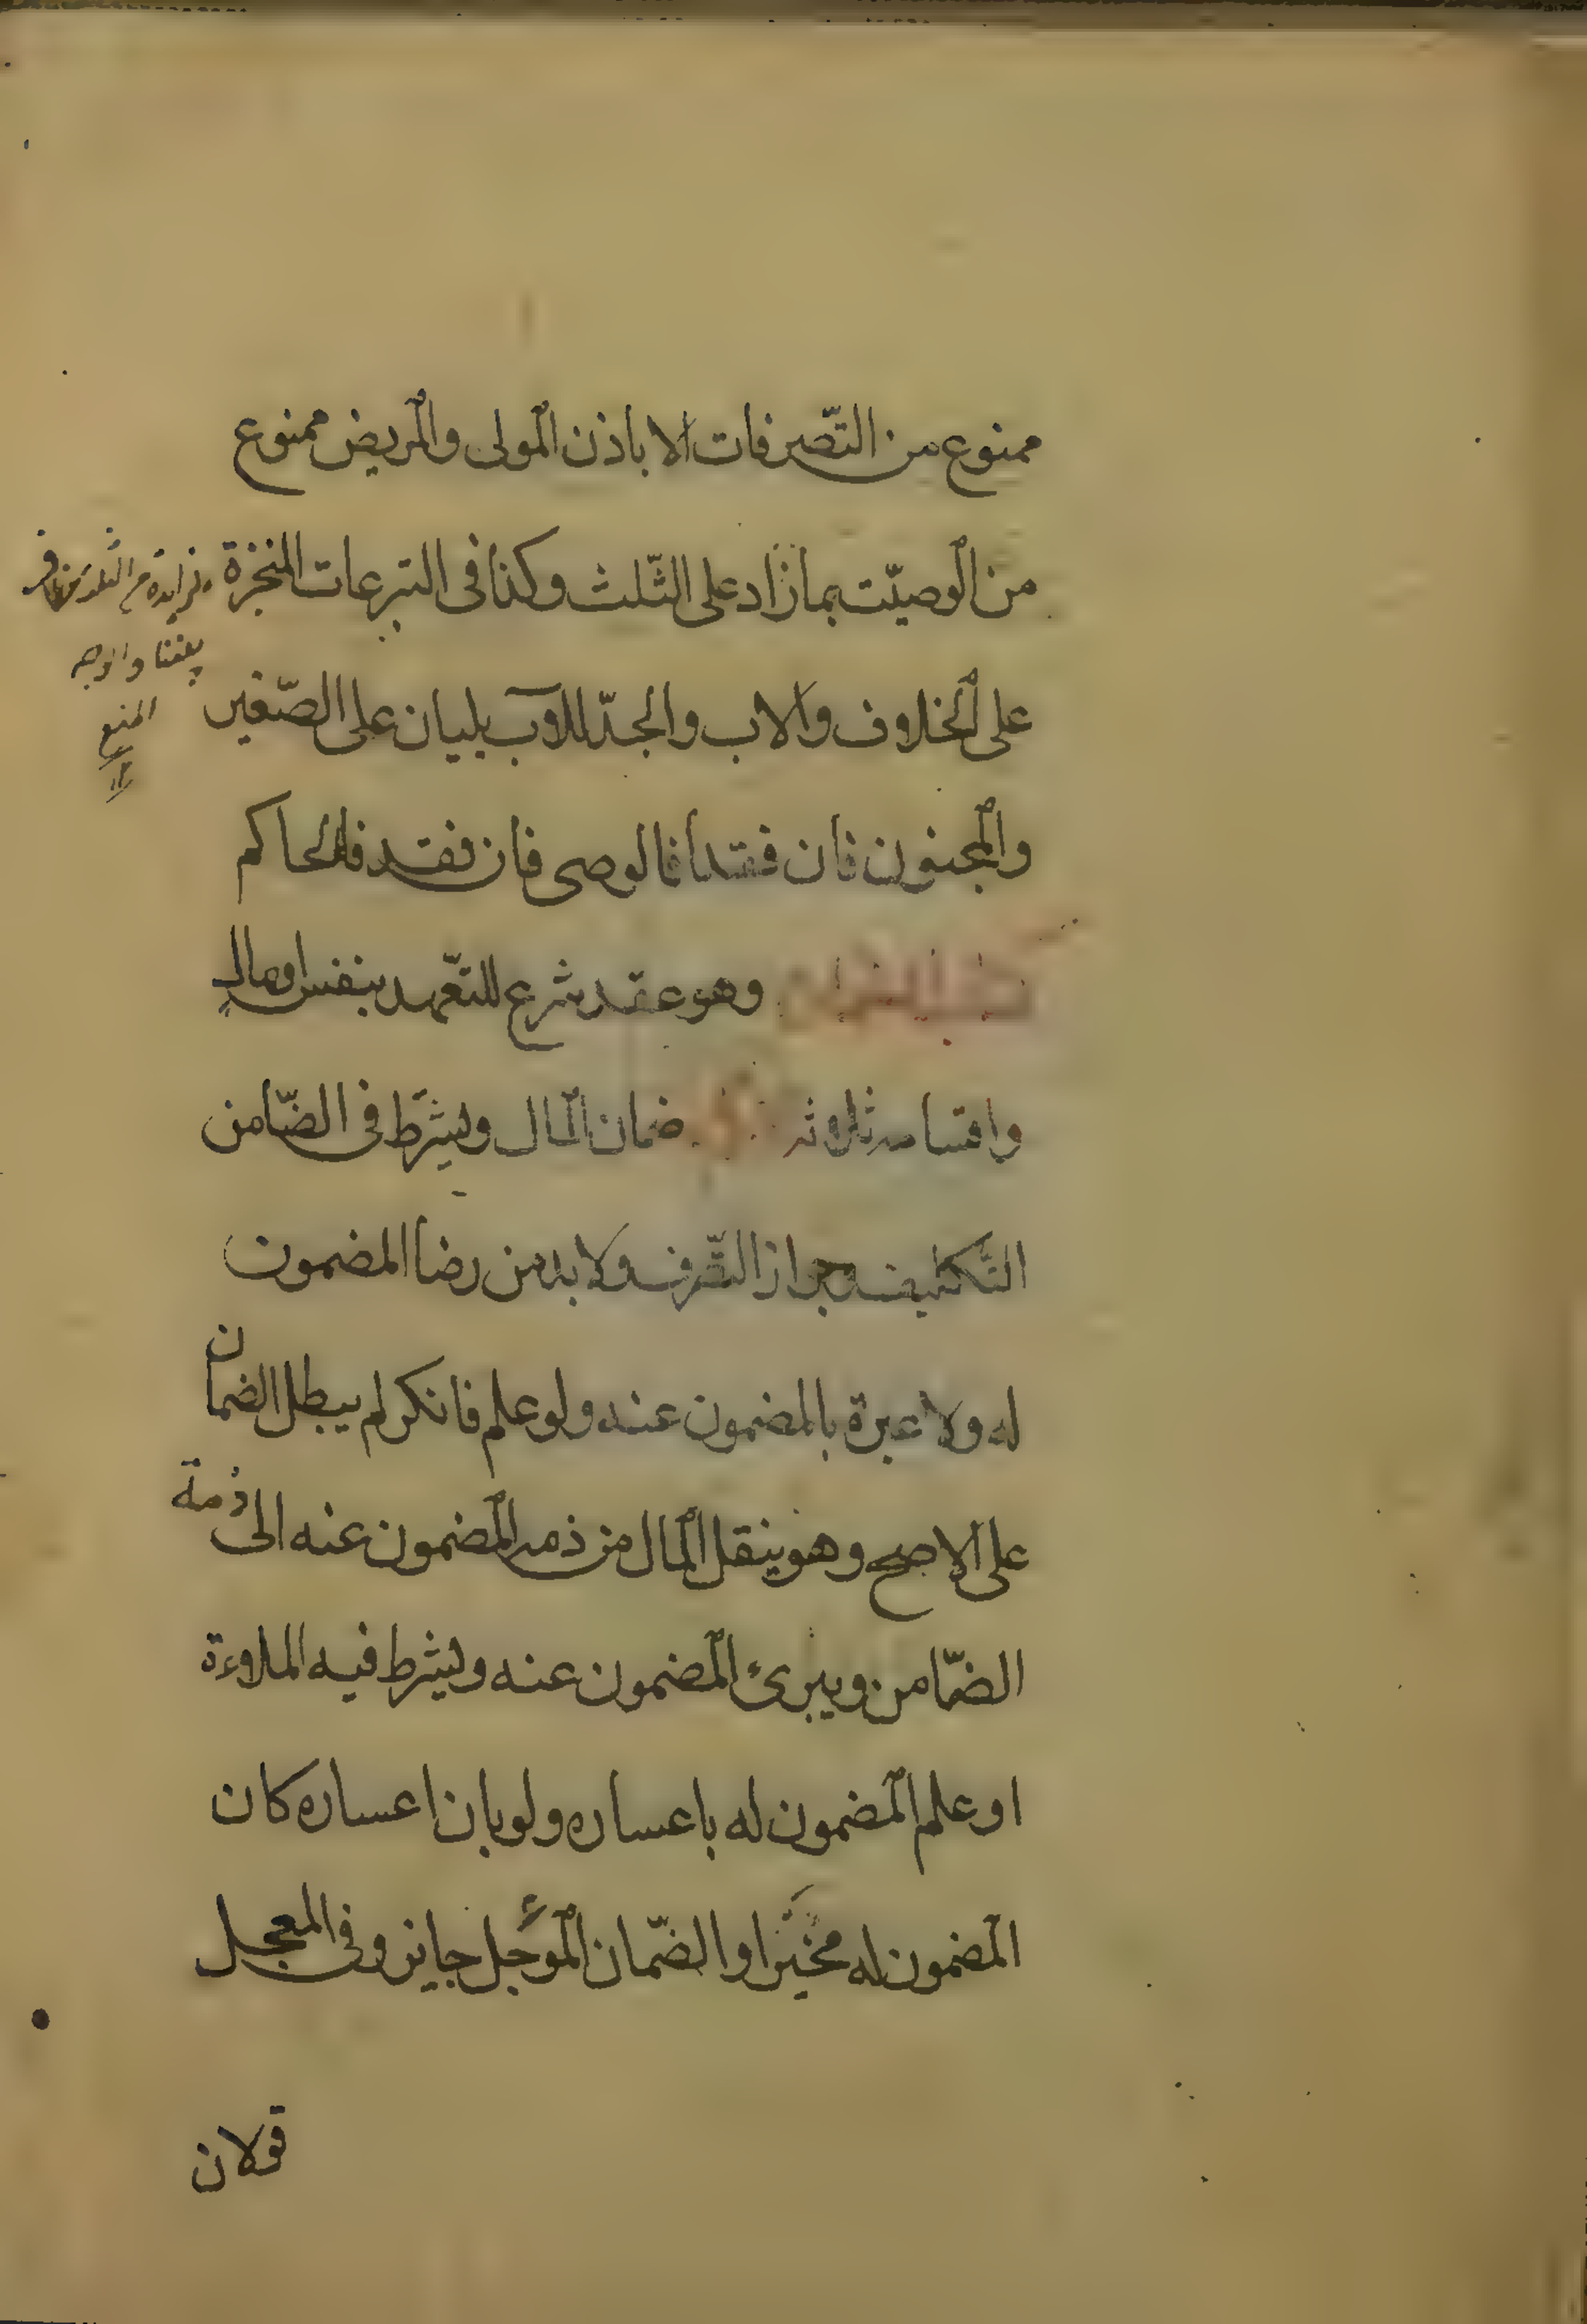 ممنوع من التّصرفات الا باذن المولى والمريض ممنوع
من الوصيّت بما زاد على الثّلث وكذا فى التبرعات المنجزة
على الخلاف والاب والجدّ للاب يليان على الصّغير
والمجنون فان فقدا فالوصى فان فقد فالحاكم
وهو عقد شرع للتعّهد بنفس او مال
واقسامه ثلاثه ضمان المال ويشترط فى الضّامن
التّكليف وجواز التصّرف ولا بد من رضا المضمون
له ولا عبرة بالمضمون عنه ولو علم فانكر لم يبطل الضمان
على الاصح وهو ينقل المال من ذمه المضمون عنه الى ذمة
الضّامن ويبرئ المضمون عنه ويشترط فيه الملاءة
او علم المضمون له باعساره ولو بان اعساره كان
المضمون له مخيّرا والضّمان المؤجل جايز وفى المعجل
قولان
المنع